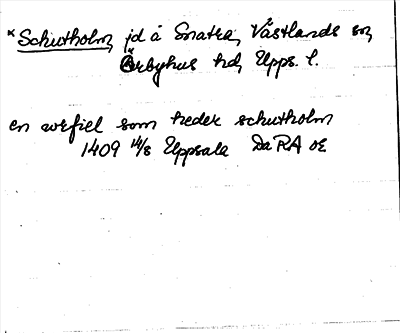 *Schutholm, jd å Snatra, Västlands sn,
Örbyhus hd, Upps. l.
en werfiel som heder schutholm
1409 14/8 Uppsala DaRA oe